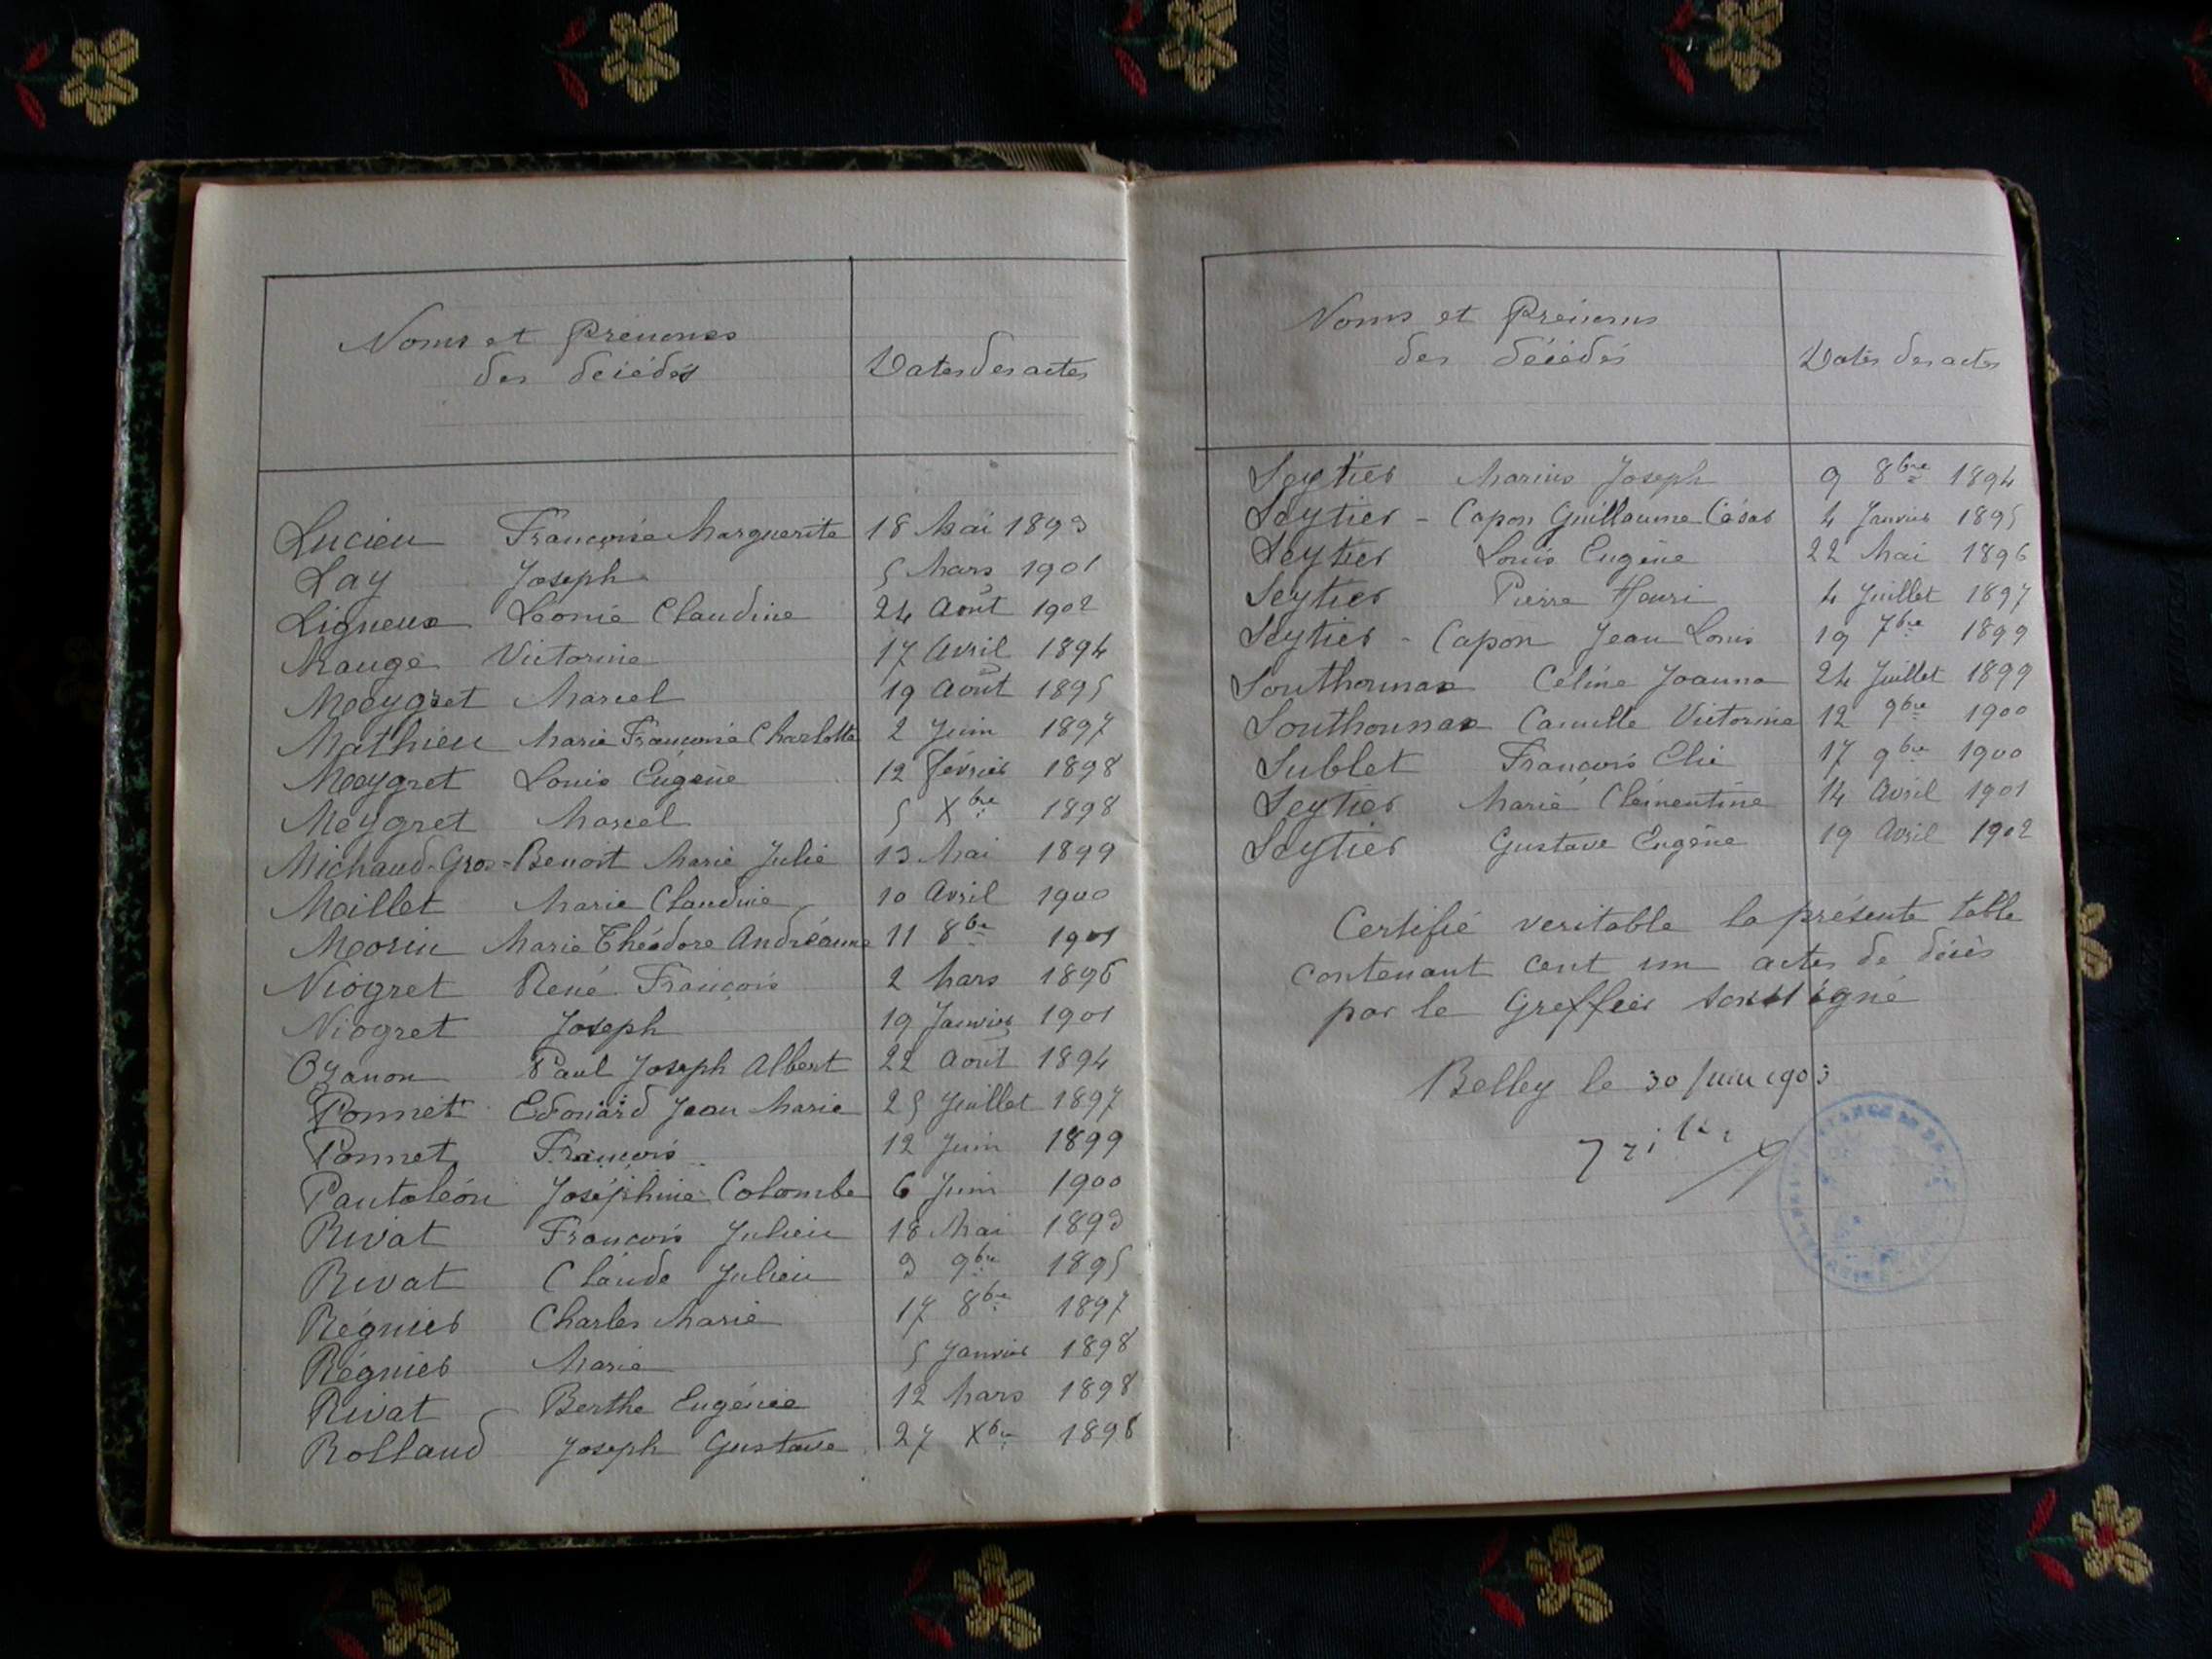 Noms et Prénoms
des décédés
Dates des actes
Lucien Françoise Marguerite 18 Mai 1893
Lay Joseph 5 Mars 1901
Ligneux Léonie Claudine 24 Août 1902
Mauge Victorine 17 Avril 1894
Meygret Marcel 19 Août 1895
Mathieu Marie Françoise Charlotte 2 Juin 1897
Meygret Louis Eugène 12 février 1898
Meygret Marcel 5 Xbre 1898
Michaud-Gros-Benoit Marie Julie 13 Mai 1899
Maillet Marie Claudine 10 Avril 1900
Morin Marie Théodore Andréanne 11 8bre 1901
Niogret René François 2 Mars 1896
Niogret Joseph 19 Janvier 1901
Ozanon Paul Joseph Albert 22 Août 1894
Ponnet Edouard Jean Marie 25 Juillet 1897
Ponnet François 12 Juin 1899
Pantaléon Joséphine Colombe 6 Juin 1900
Rivat François Julien 18 Mai 1893
Rivat Claude Julien 3 9bre 1895
Régnier Charles Marie 17 8bre 1897
Régnier Marie 5 Janvier 1898
Rivat Berthe Eugénie 12 Mars 1898
Rolland Joseph Gustave 27 Xbre 1898
Noms et Prénoms
des décédés
Dates des actes
Seytier Marius Joseph 9 8bre 1894
Seytier - Capon Guillaume César 4 Janvier 1895
Seytier Louis Eugène 22 Mai 1896
Seytier Pierre Henri 4 Juillet 1897
Seytier - Capon Jean Louis 19 7bre 1899
Southonnax Céline Joanna 24 Juillet 1899
Southonnax Camille Victorine 12 9bre 1900
Sublet François Elie 17 9bre 1900
Seytier Marie Clémentine 14 Avril 1901
Seytier Gustave Eugène 19 Avril 1902
Certifié veritable la présente table
contenant cent un actes de décès
par le Greffier soussigné
Belley le 30 Juin 1903